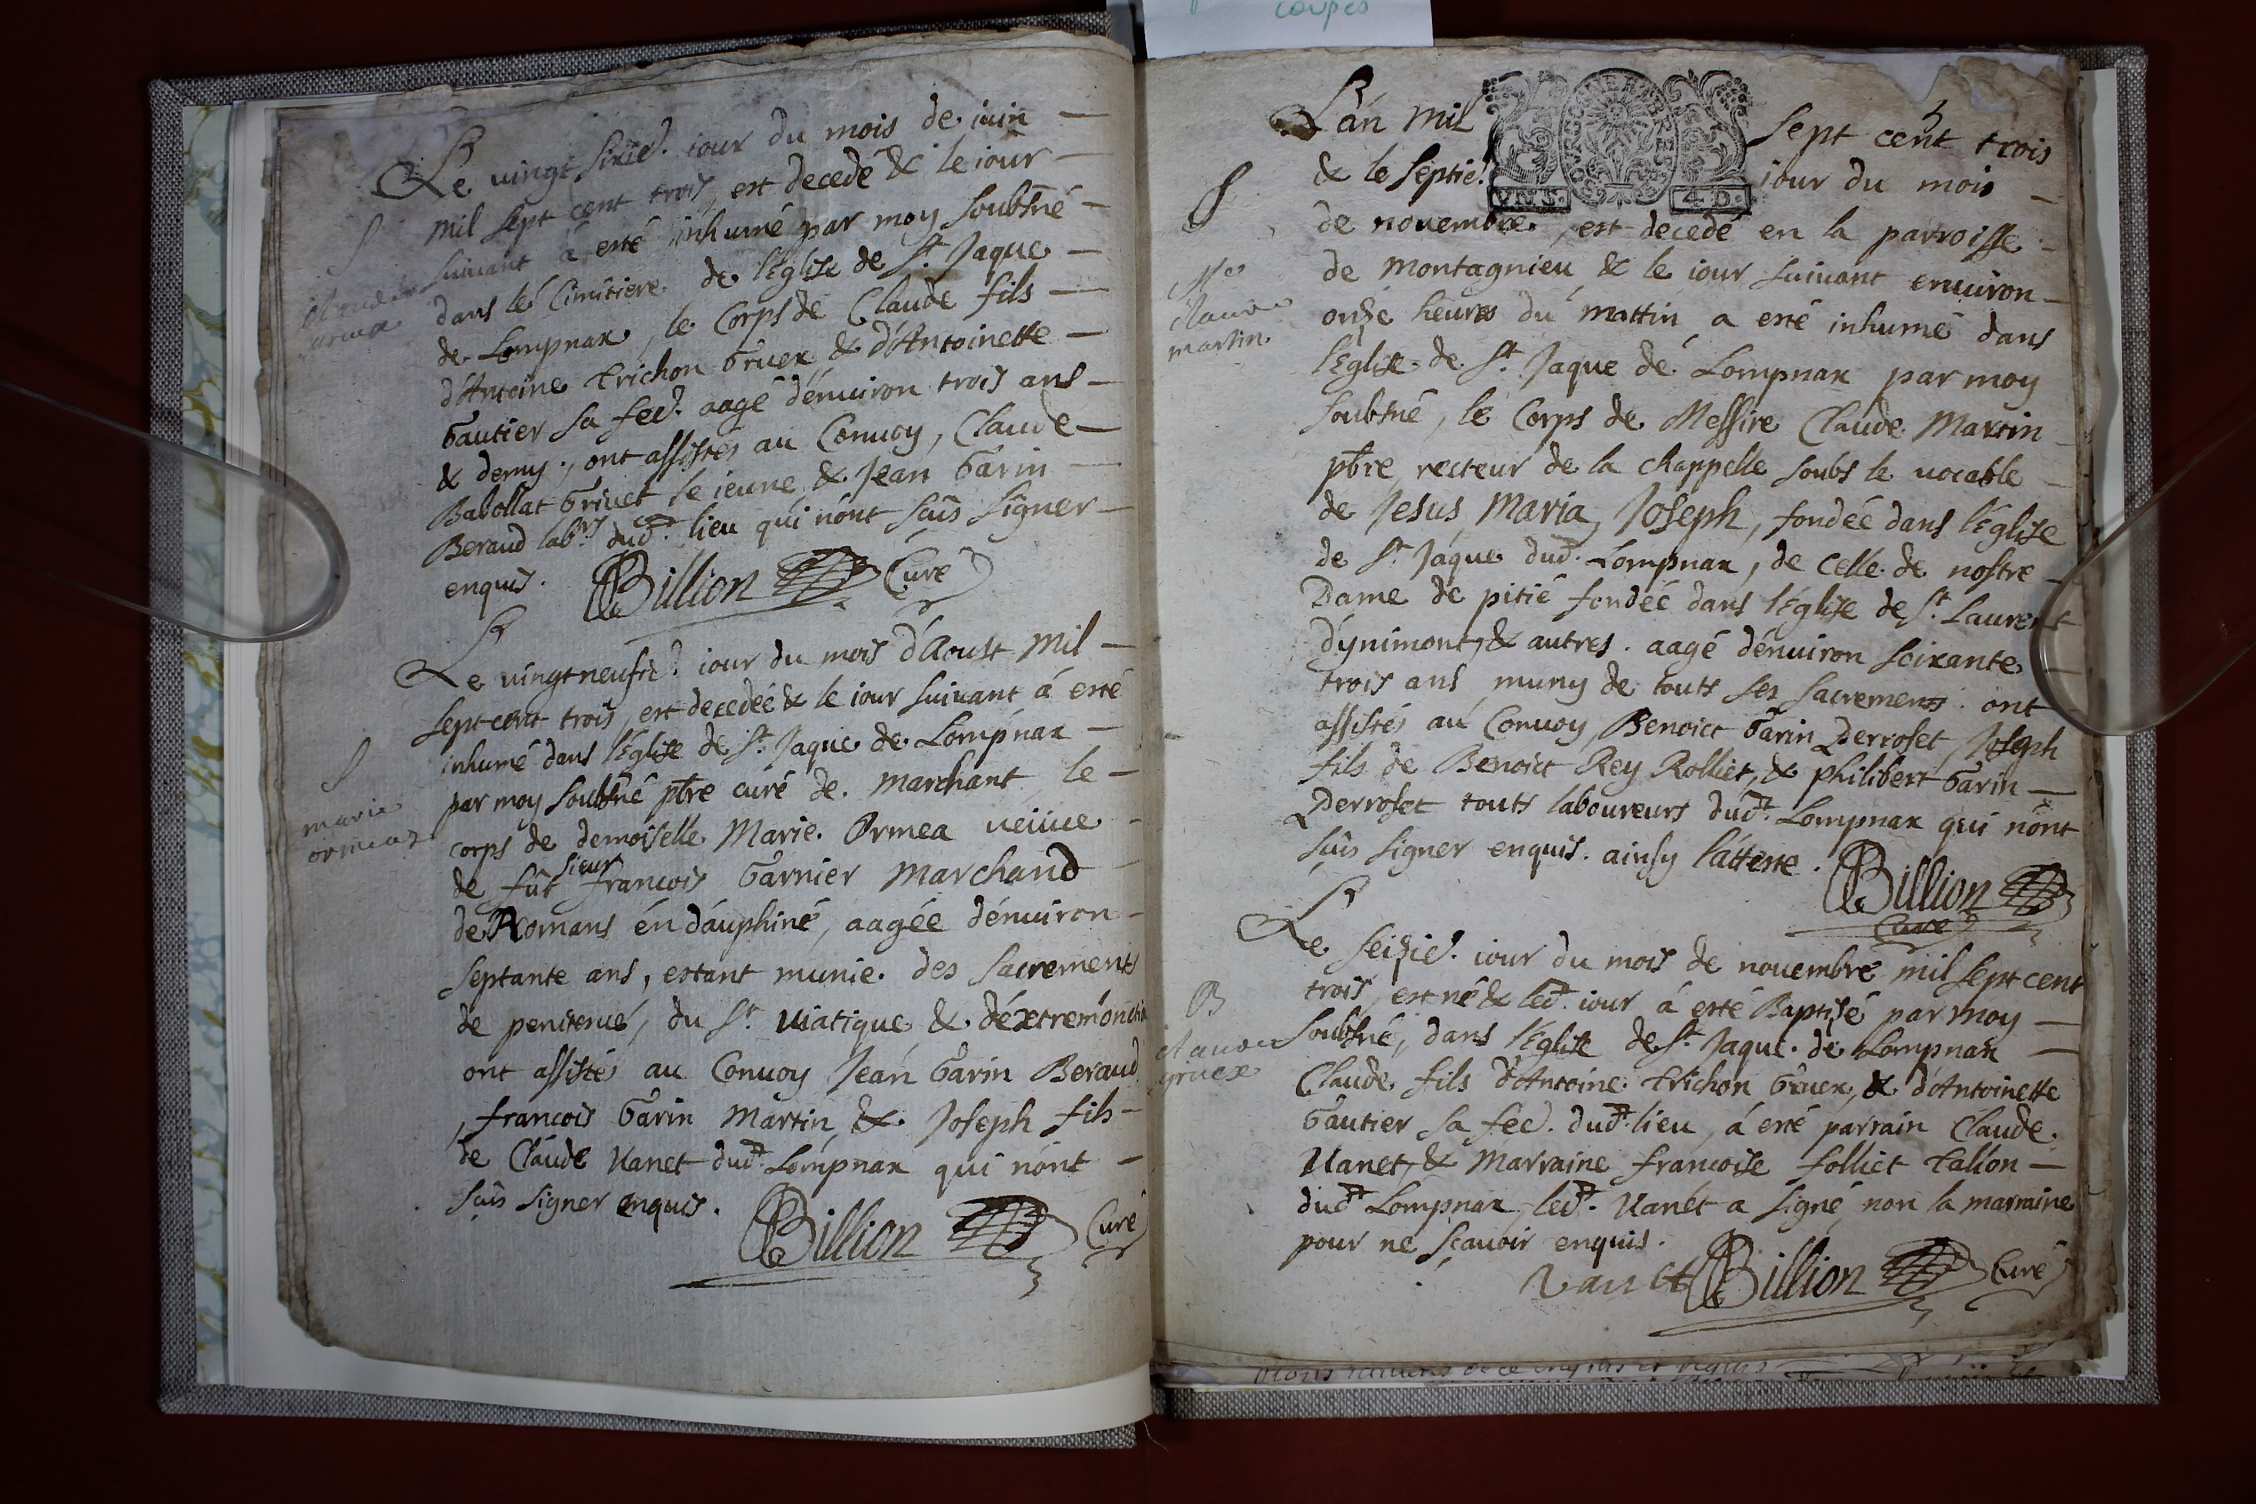 coupes
Le vingt sixie. iour du mois de iuin
mil sept cent trois, est decedé & le iour
suivant à esté inhumé par moy soubsné
dans le Cimitiere de l'Eglise de St. Jaque
de Lompnax, le Corps de Claude fils
d'Antoine Trichon Gruex & d'Antoinette
Gautier sa fee. aagé d'énuiron trois ans
& demy, ont assistés au Conuoy, Claude
Babollat Griuet le ieune, & Jean Garin
Beraud labrs. dud. lieu qui nónt sçûs signer
enquis. Billion Curé
S
Claude
gruex
Le vingtneufie. iour du mois d'Aoust mil
sept cent trois, est decedée & le iour suiuant á esté
inhumé dans l'Eglise de St. Jaque de Lompnax
par moy soubsné ptre curé de marchant le
corps de demoiselle Marie Ormea ueiiue
de fût sieur francois Garnier Marchand
de Romans én dáuphiné, aagée dénuiron
septante ans, estant munie des sacrements
de penitence, du St. Uiatique & d'éxtremónctio
ont assistés au Conuoy Jean Garin Beraud
, francois Garin Martin & Joseph fils
de Claude Uanet dud. Lompnax qui nónt
sçûs signer enquis. Billion Curé
S
marie
ormeaz
L'án mil sept cent trois
& le septie. iour du mois
UN S. 4 D.
de nouembre, est decedé en la parroisse
de montagnieu & le iour suiuant enuiron
onze heures du mattin a esté inhumé dans
l'Eglise de St. Jaque dé Lompnax par moy
soubsné, le Corps de Messire Claude Martin
ptre, recteur de la chappelle soubs le uocable
de Jesus Maria Joseph, fondée dans l'Eglise
de St. Jaque dud. Lompnax, de Celle de nostre
Dame de pitié fondée dans l'Eglise de St. Laurent
d'ynimont, & autres. aagé dénuiron soixante
trois ans muny de touts ses sacrements. ont
assistés au Conuoy, Benoict Garin Derroset, Joseph
fils de Benoict Rey Rolliet, & philibert Garin
Derroset touts laboureurs dud. Lompnax qui nónt
sçûs signer enquis. ainsy l'atteste. Billion
Curé
S
Mre
Claude
martin
Le seizie. iour du mois de nouembre mil sept cent
trois, est né & led. iour á esté Baptisé par moy
soubsné, dans l'Eglise de St. Jaque de Lompnax
Claude fils d'Antoine Trichon Gruex, & d'Antoinette
Gautier sa fee. dud. lieu, á esté parrain Claude
Uanet, & Marraine francoise folliet Tallon
dud. Lompnax, led. Uanet a signé, non la marraine
pour ne sçauoir enquis.
Vanet Billion Curé
B
claude
gruex